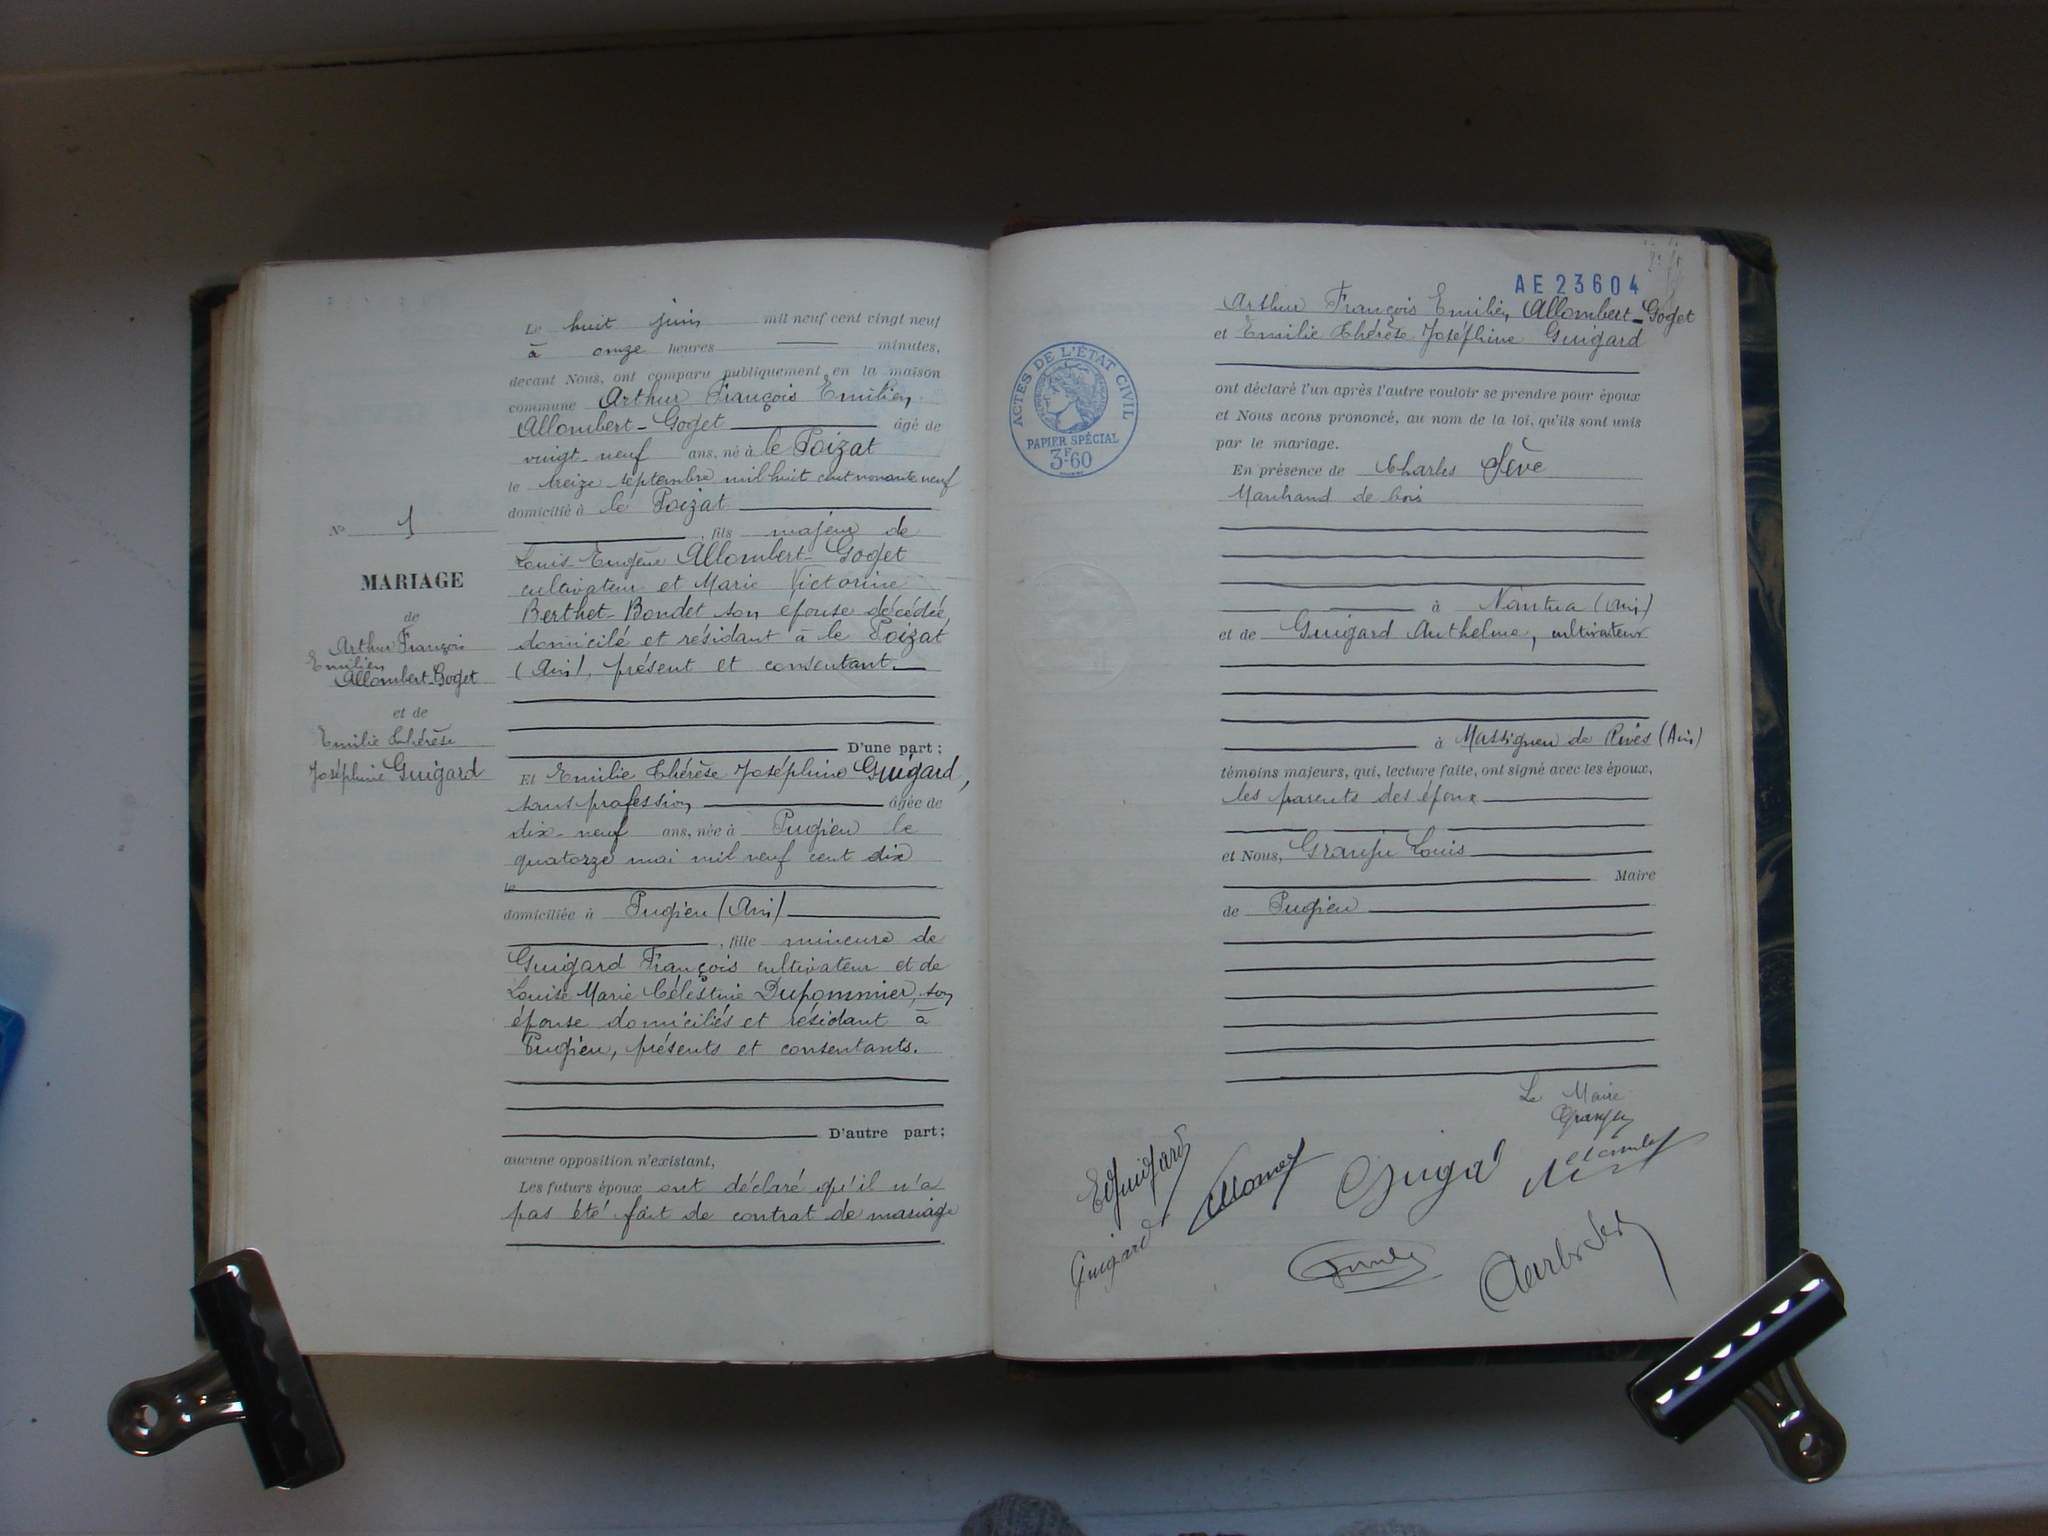 Le huit juin mil neuf cent vingt neuf
à onze heures minutes,
devant Nous, ont comparu publiquement en la maison
commune Arthur François Emilien
Allombert-Goget âgé de
vingt-neuf ans, né à le Poizat
le treize septembre mil huit cent nonante neuf
domicilié à le Poizat
, fils majeur de
Louis Eugène Allombert-Goget
cultivateur et Marie Victorine
Berthet-Bondet son épouse décédée,
domicilé et résidant à le Poizat
(Ain), présent et consentant.
D'une part ;
Et Emilie Thérèse Joséphine Guigard,
sans profession, âgée de
dix-neuf ans, née à Pugieu le
quatorze mai mil neuf cent dix
le
domiciliée à Pugieu (Ain)
, fille mineure de
Guigard François cultivateur et de
Louise Marie Célestine Dupommier, son
épouse domiciliés et résidant à
Pugieu, présents et consentants.
D'autre part ;
aucune opposition n'existant,
Les futurs époux ont déclaré qu'il n'a
pas été fait de contrat de mariage
N° 1
MARIAGE
de
Arthur François
Emilien
Allombert-Goget
et de
Emilie Thérèse
Joséphine Guigard
AE 23604
ACTES DE L'ÉTAT CIVIL
PAPIER SPÉCIAL
3F60
Arthur François Emilien Allombert-Goget
et Emilie Thérèse Joséphine Guigard
ont déclaré l'un après l'autre vouloir se prendre pour époux
et Nous avons prononcé, au nom de la loi, qu'ils sont unis
par le mariage.
En présence de Charles Sève
Marchand de bois
à Nantua (Ain)
et de Guigard Anthelme, cultivateur
à Massignieu de Rives (Ain)
témoins majeurs, qui, lecture faite, ont signé avec les époux,
les parents des époux
et Nous, Granju Louis
Maire
de Pugieu
Le Maire
Granju
EGuigard
Guigard